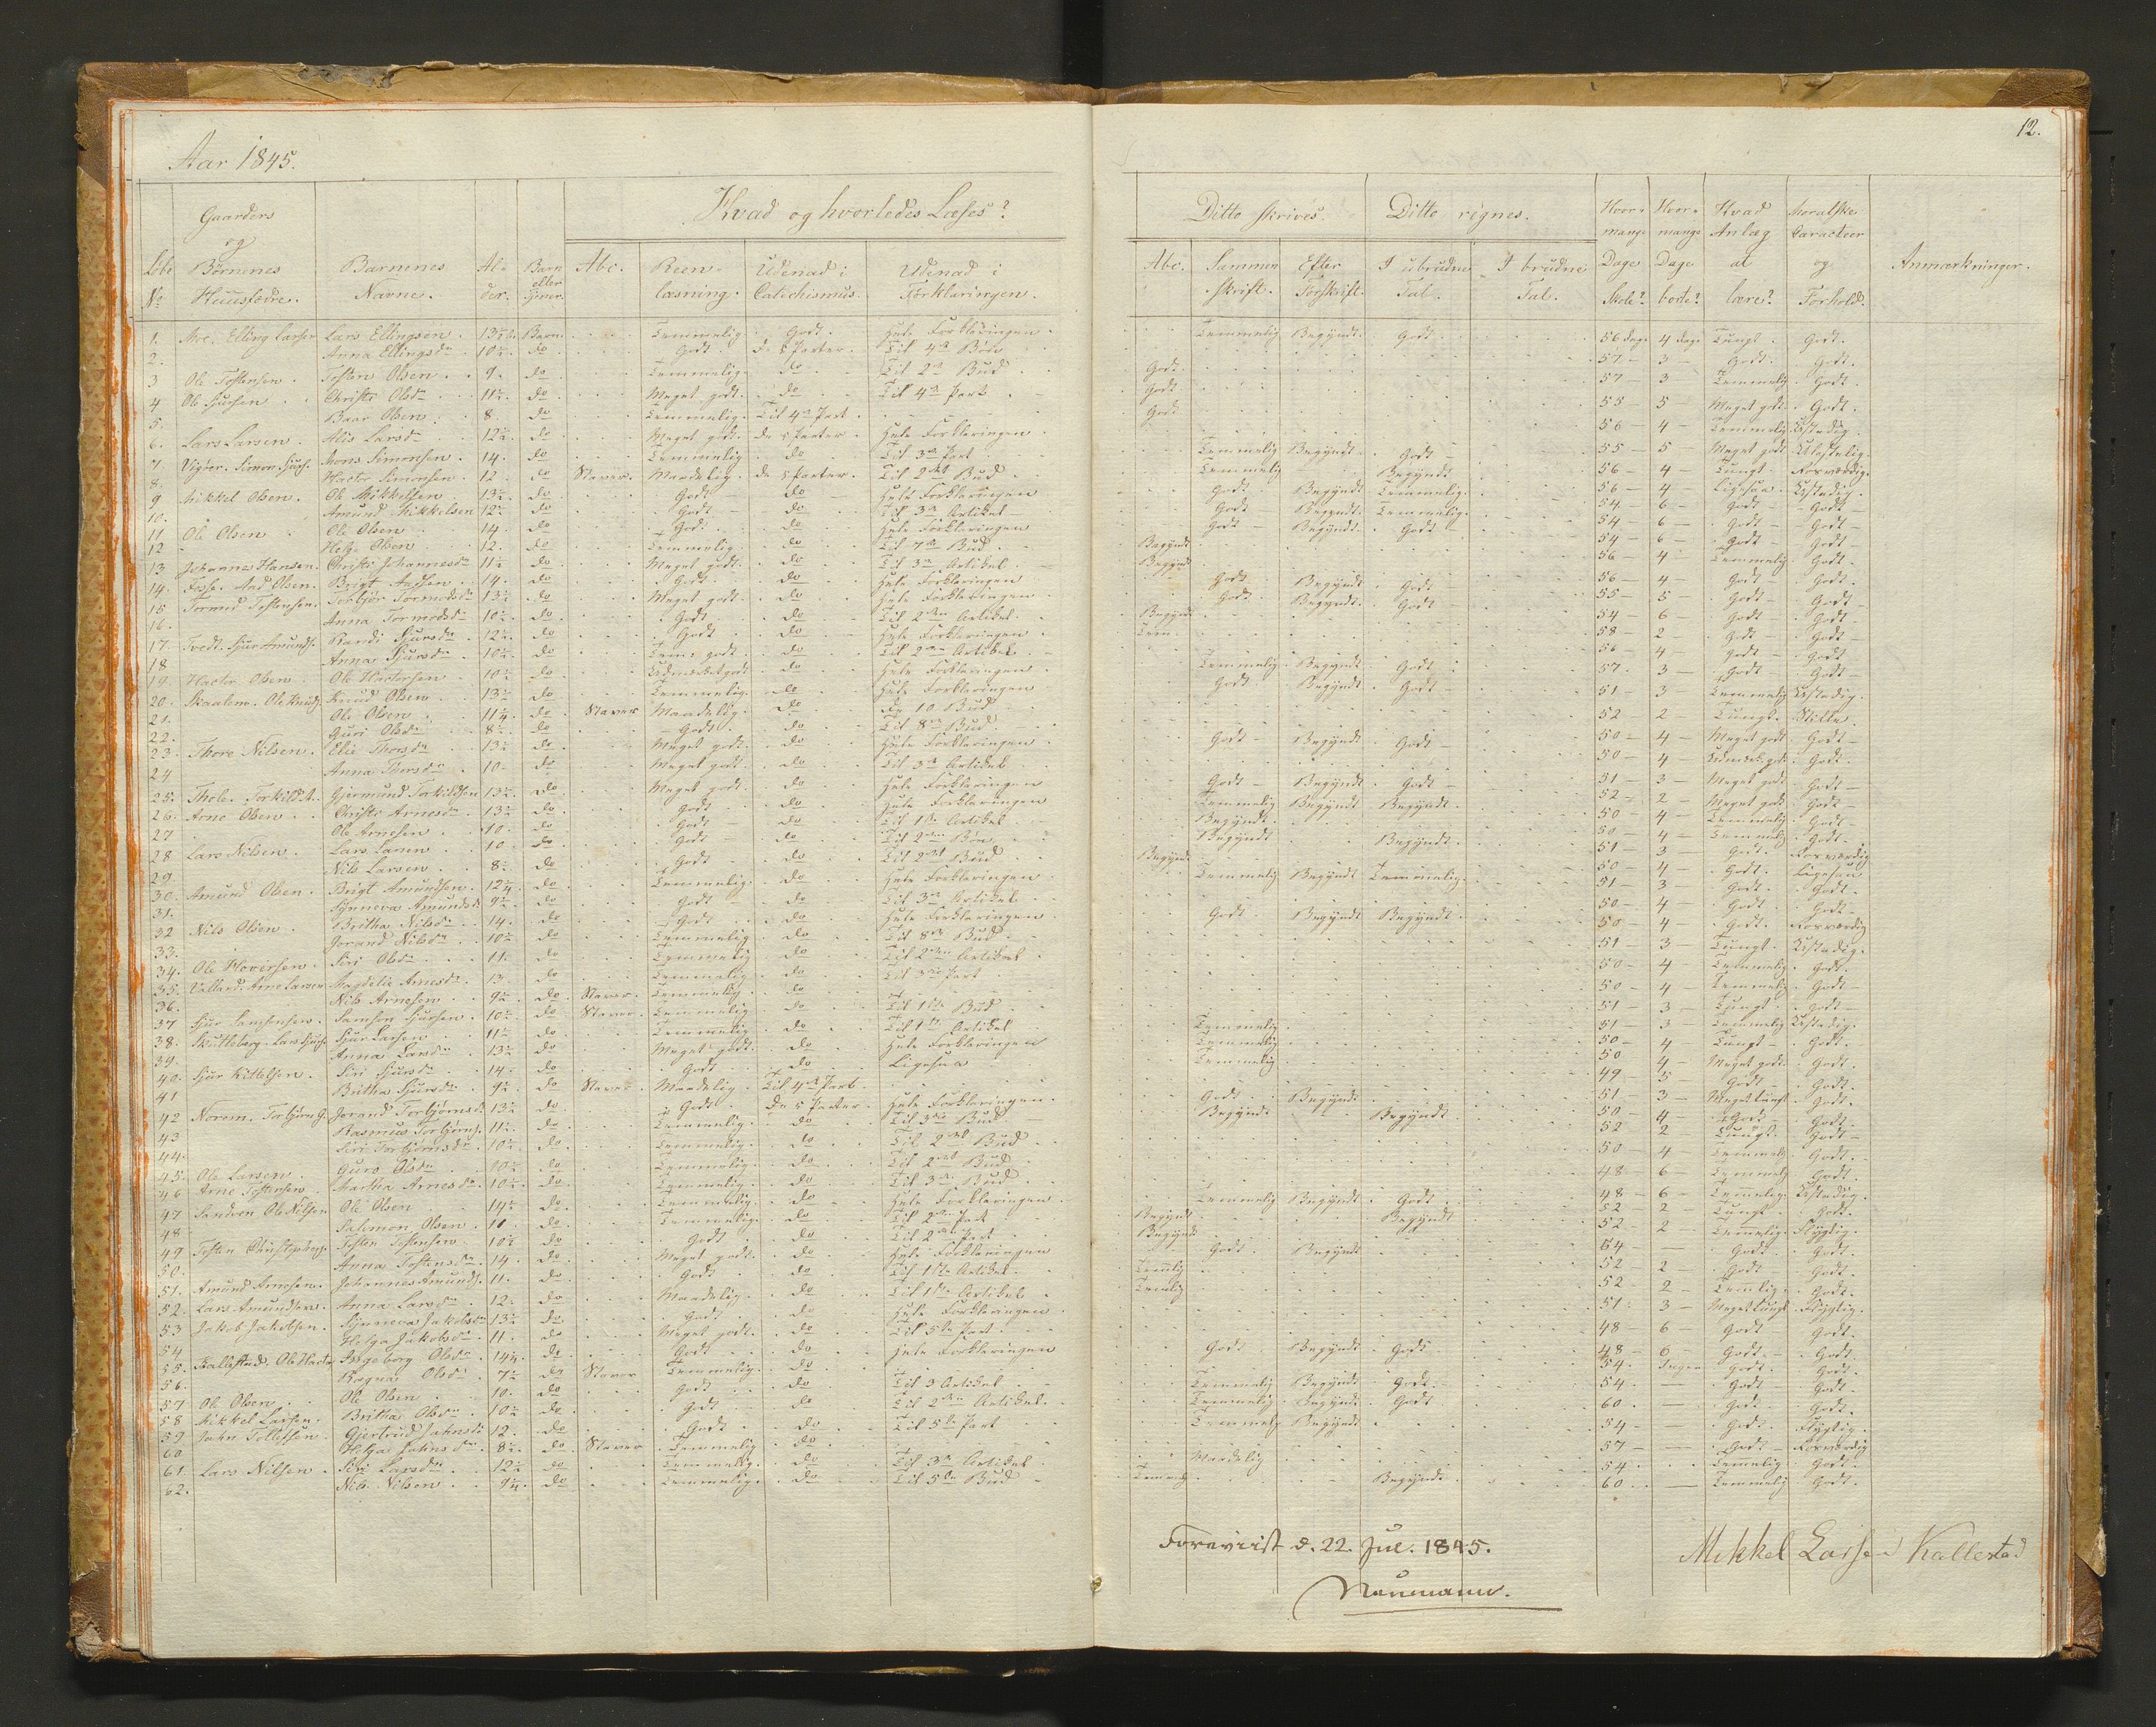 12.
Aar 1845.
Løbe No Gaarders og Børnenes Huusfædre. Barnenes Navne. Alder. Barn eller Tjener. Hvad og hvorledes Læses? Abc. Reenlæsning. Udenad i Catechismus. Udenad i Forklaringen.
1. Elling Larsen Lars Ellingsen. Barn. Temmelig Godt. Hele Forklaringen
2. Anna Ellingsdr do Godt. De 5 Parter. Til 4de Bøn
3 Ole Tostensen. Tosten Olsen. 9. do Temmelig. do Til 2det Bud
4 Ole Sjursen Christi Olsdr do Meget godt. do Til 4de Part
5. Baar Olsen 8 do Temmelig. Til 4de Part
6. Lars Larsen. Alis Larsdr do Meget godt. De 5 Parter Hele Forklaringen
7. Simon Mons Simonsen. 14. do Temmelig do Til 3die Part
8. Hactor Simonsen. 12 do Staver. Maadelig. De 5 Parter. Til 2det Bud
9 Mikkel Olsen. Ole Mikkelsen do Godt do Hele Forklaringen
10. Amund Mikkelsen do Godt do Til 3die Artikel
11 Ole Olsen Ole Olsen 14. do Godt do Hele Forklaringen
12 Helge Olsen 12. do Temmelig. do Til 7de Bud
13 Johannes Hansen. Christi Johannesdr do Meget godt. do Til 3die Artikel
14. Brigt 14. do Godt. do Hele Forklaringen
15 Tormod Tostensen. Torbjør Tormodsdr do Meget godt. do Hele Forklaringen
16. Anna Tormodsdr do Godt. do Til 2den Artikel
17. Tvedt. Sjur Amunds. Randi Sjursdr do Godt do Hele Forklaringen
18 Anna Sjursdr do godt. do Til 2den Artikel
19. Hactor Olsen Ole Hactorsen do do Hele Forklaringen
20. Skaalem. Ole Knuds. Knud Olsen do Temmelig. do Hele Forklaringen
21. Ole Olsen 11¼ do Staver Maadelig. do De 10 Bud
22. Guri Olsdr do Godt. do Til 8de Bud
23. Thore Nilsen. Elie Thorsdr do Meget godt. do Hele Forklaringen
24 Anna Thorsdr 10. do Meget godt. do Til 3die Artikel
25. Gjermund Torkildsen do Meget godt. do Hele Forklaringen
26. Arne Olsen Christi Arnesdr do Godt do Hele Forklaringen
27 Ole Arnesen 10. do Godt do Til 1ste Artikel
28 Lars Nilsen Lars Larsen 10. do Godt do Til 2den Bøn
29. Nils Larsen do Godt do Til 2det Bud
30. Amund Olsen. Brigt Amundsen. 12¼ do Temmelig. do Hele Forklaringen
31. Synneva Amundsd. do Godt do Til 3die Artikel
32 Nils Olsen Britha Nilsdr 14. do Godt do Hele Forklaringen
33. Jorand Nilsdr do Temmelig do Til 8de Bud
34. Ole Siri Olsdr 11. do Temmelig do Til 2den Artikel
35. Valland. Arne Larsen Magdelie Arnesdr 13. do Temmelig do Til 3die Part
36. Nils Arnesen do Staver. Temmelig do
37 Sjur Samsonsen. Samson Sjursen. do Staver Temmelig do Til 1ste Bud
38. Skutleberg. Lars Sjurs. Sjur Larsen do Temmelig do Til 1ste Artikel
39. Anna Larsdr do Meget godt. do Hele Forklaringen
40. Sjur Kittelsen. Siri Sjursdr 14. do Godt do Ligesaa
41 Britha Sjursdr do Staver Maadelig. Til 4de Part.
42 Norem. Torbjørn Jorand Torbjørnsd. do Godt. De 5 Parter. Hele Forklaringen.
43 Rasmus Torbjørns. do Temmelig. do Til 3die Bud
44. Siri Torbjørnsdr do Temmelig. do Til 2det Bud
45. Ole Larsen Guro Olsdr do Temmelig. do Til 2det Bud
46 Arne Tostensen Martha Arnesdr do Temmelig. do Til 3die Bud
47 Sandven Ole Nilsen Ole Olsen do Temmelig. do Hele Forklaringen
48 Salomon Olsen. 11 do Temmelig. do Til 2den Part
49 Tosten Christophers. Tosten Tostensen do Godt do Til 2den Part
50. Anna Tostensdr 14. do Meget godt. do Hele Forklaringen
51. Amund Arnesen. Johannes Amunds. 11. do Godt do Til 1ste Artikel
52. Lars Amundsen. Anna Larsdr 12. do Maadelig. do Til 1ste Artikel
53 Jakob Jakobsen. Synneva Jakobsdr do Godt do Hele Forklaringen
54 Helga Jakobsdr 11. do Meget godt. do Til 5te Part
55. Kallestad. Ole Ingeborg Olsdr do Godt do Hele Forklaringen
56. Ragna Olsd do Staver Temmelig. do
57 Ole Olsen Ole Olsen 10. do Godt do Til 3 Artikel
58 Mikkel Larsen. Britha Olsdr do Godt do Til 2den Artikel
59 Jahn Tollefsen. Gjertrud Jahnsd. 12. do Godt do Til 5te Part
60 Helga Jahnsdr do Staver Temmelig do
61. Lars Nilsen Siri Larsdr do Temmelig. do Til 3die Artikel
62. Nils Nilsen 9¼. do Temmelig. do Til 5te Bud
Ditto skrives. Ditto rignes. Hvormange Dage Skole? Hvormange Dage borte? Hvad Anlæg at lære? Moralske Caracteer og Forhold. Anmærkninger.
Abc. Sammenskrift. Efter Forskrift. I ubrudne Tal. I brudne Tal.
Temmelig Begyndt. Godt 56 dage 4 dage Tungt. Godt.
Godt. 57 - 3 - Godt. Godt.
Godt 57 - 3 Temmelig Godt.
Godt 55 - 5 - Meget godt. Godt.
56 - 4 - Temmelig Ustadig.
Temmelig Begyndt. Godt 55 - 5 - Meget godt
Temmelig Begyndt 56 - 4 - Tungt. Rosværdig.
Godt Begyndt Temmelig. 56 - 4 Ligesaa Ustadig.
Godt Begyndt. Temmelig. 54 6 - Godt Godt
Godt Begyndt. Godt 54 - 6 - Godt Godt
Begyndt 54 - 6 - Godt Godt
Begyndt 56 - 4 Temmelig Godt.
Godt Begyndt Godt 56 - 4 - Godt Godt.
Godt. Begyndt. Godt 55 - 5 - Godt Godt
Begyndt 54 - 6 - Godt Godt.
58 - 2 - Godt Godt
56 - 4 - Godt Godt
Temmelig. Begyndt. Godt 57. 3 - Godt Godt
Godt Begyndt. Godt 51 - 3 Temmelig Ustadig.
52 2 Tungt. Stille.
Godt Begyndt Godt 50 - 4 - Meget godt Godt
50 - 4 godt. Godt.
Godt Begyndt Godt 51 - 3 - Meget godt Godt
Temmelig Begyndt Begyndt. 52 - 2 - Meget godt Godt
Begyndt. 50 - 4 - Temmelig Godt
Begyndt Begyndt. 50 - 4 - Temmelig Godt
Begyndt. 51 - 3 Godt. Rosværdig
Temmelig Begyndt Temmelig. 50 - 4 - Godt. Ligesaa
51 - 3 - Godt. Godt.
Godt Begyndt Begyndt. 50 - 4 - Godt Godt
50 - 4 Godt. Rosværdig
51 - 3 - Tungt. Ustadig.
50 - 4 - Temmelig. Godt.
50 - 4 - Temmelig Godt
51 - 3 - Tungt Godt
Temmelig. 51 - 3 Temmelig Ustadig.
Temmelig 50 - 4 Tungt. Godt.
Temmelig 50 4 - Meget godt. Godt.
49 - 5 - Godt Godt.
Godt Begyndt 51 - 3 - Meget tungt Godt.
Begyndt Begyndt 50 - 4 - Godt. Godt.
52 2 Tungt Godt
50 - 4 - Temmelig Godt.
48 - 6 - Temmelig Godt.
Temmelig Begyndt. Godt 48 - 6 - Temmelig. Ustadig.
Begyndt Begyndt 52 - 2 - Tungt Godt.
Begyndt 52 - 2 - Temmelig. Flygtig.
Godt Begyndt 54 - Godt Godt.
52 - 2 - Godt Godt.
52 2 - Godt.
51. 3 - Meget tungt Flygtig.
48 - 6 Godt Godt.
Godt Begyndt Godt 48 - 6 - Godt. Godt.
54. Ingen Godt. Godt.
Temmelig Begyndt Godt. 54. Godt Godt.
Temmelig Begyndt Godt 60. Godt Godt.
Temmelig Begyndt 54 - Godt. Flygtig.
57 - Godt Rosværdig
Maadelig 54. Temmelig. Godt.
Temmelig Begyndt. 60. Temmelig Godt.
Foreviist d. 22. Jul. 1845.
Neumann.
Mikkel Larsen Kallestad